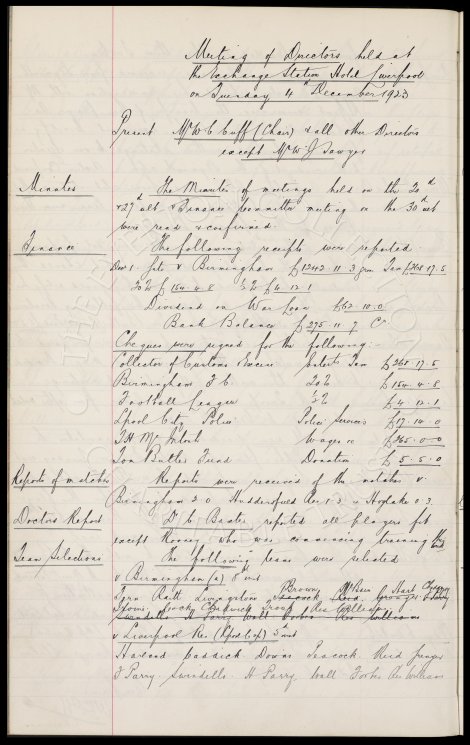 Meeting of Directors held at
the Exchange Station Hotel Liverpool
on Tuesday 4th December 1923
Present Mr W. C. Cuff (Chair) & all other Directors
except Mr W. J. Sawyer
Minutes
The Minutes of meetings held on the 20th
& 27th ult & Finance Committee meeting on the 30th ult
were read & confirmed.
Finance
The following receipts were reported.
Dec 1. Gate v Birmingham £1242.11.3 Tax £268.17.5
20% £164.4.8 ½% £4.12.1
Dividend on War Loan £62.10.0
Bank Balance £275.11.7 Cr.
Cheques were signed for the following:-
Collector of Customs Excise Enterts Tax £268.17.5
Birmingham F.C. 20% £164.4.8
Football League ½% £4.12.1
Lpool City Police Police Services £17.14.0
T.H. McIntosh Wages £265.0.0
Tom Butler Fund Donation £5.5.0
Reports of matches
Reports were received of the matches v.
Birmingham 2.0 Huddersfield Res 1.3 v Hoylake 0.3.
Doctors Report
Dr C. Baxter reported all players fit
except who was commencing training
Team Selections
The following teams were selected
v Birmingham (a) 8th inst
Fern Raitt Livingstone Brown McBain Hart Chedgzoy
Peacock Reid
Irvine Cock Chadwick Troup Res
Swindells H Parry Wall Forbes Res Williams
v Liverpool Res (Lpool Cup) 5th inst
Harland Caddick Downs Peacock Reid
F Parry. Swindells. H Parry, Wall Forbes Res Williams